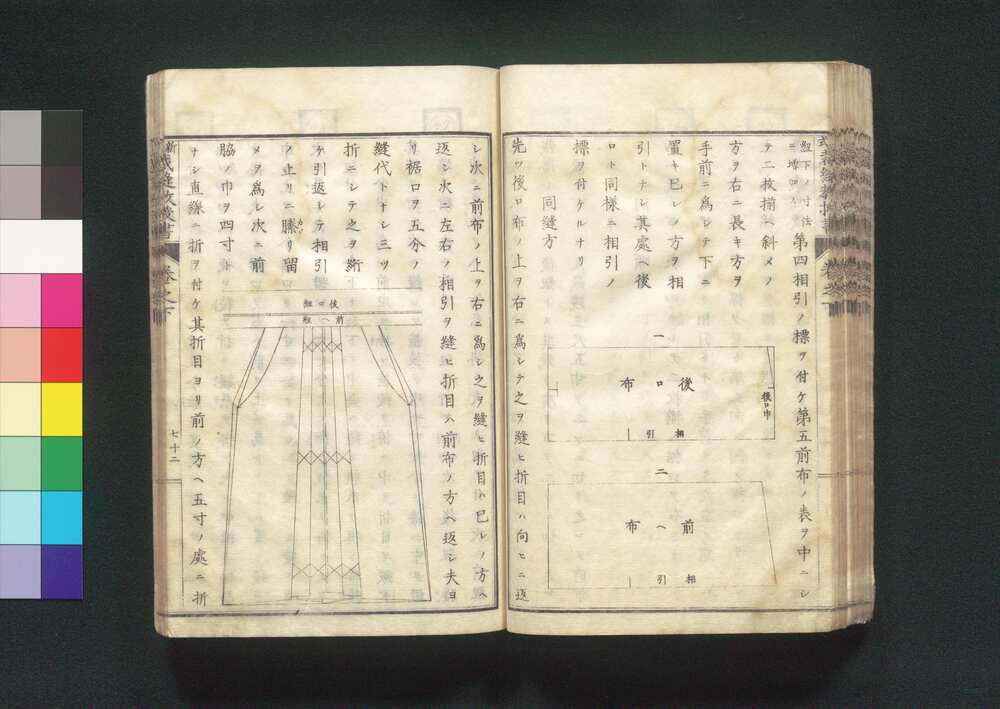 紐下ノ寸法
ニ増加ス 第四相引ノ標ヲ付ケ第五前布ノ表ヲ中ニシ
テ二枚揃ヘ斜メノ
方ヲ右ニ長キ方ヲ
手前ニ爲シテ下ニ
置キ巳レノ方ヲ相
引トナシ其處ヘ後
ロト同樣ニ相引ノ
標ヲ付ケルナリ
同縫方
先ツ後ロ布ノ上ヲ右ニ爲シテ之ヲ縫ヒ折目ハ向ヒニ返
一
後ロ布
後ロ巾
相引
二
前ヘ布
相引
シ次ニ前布ノ上ヲ右ニ爲シ之ヲ縫ヒ折目ハ巳レノ方ヘ
返シ次ニ左右ノ相引ヲ縫ヒ折目ハ前布ノ方ヘ返シ夫ヨ
リ裾口ヲ五分ノ
縫代トナシ三ツ
折ニシテ之ヲ絎
ケ引返シテ相引
ノ止リニ縢リ留
かゞ
メヲ爲シ次ニ前
脇ノ巾ヲ四寸ト
ナシ直線ニ折ヲ付ケ其折目ヨリ前ノ方ヘ五寸ノ處ニ折
後ロ紐
前ヘ紐
新式裁縫教授書
卷之下
七十二